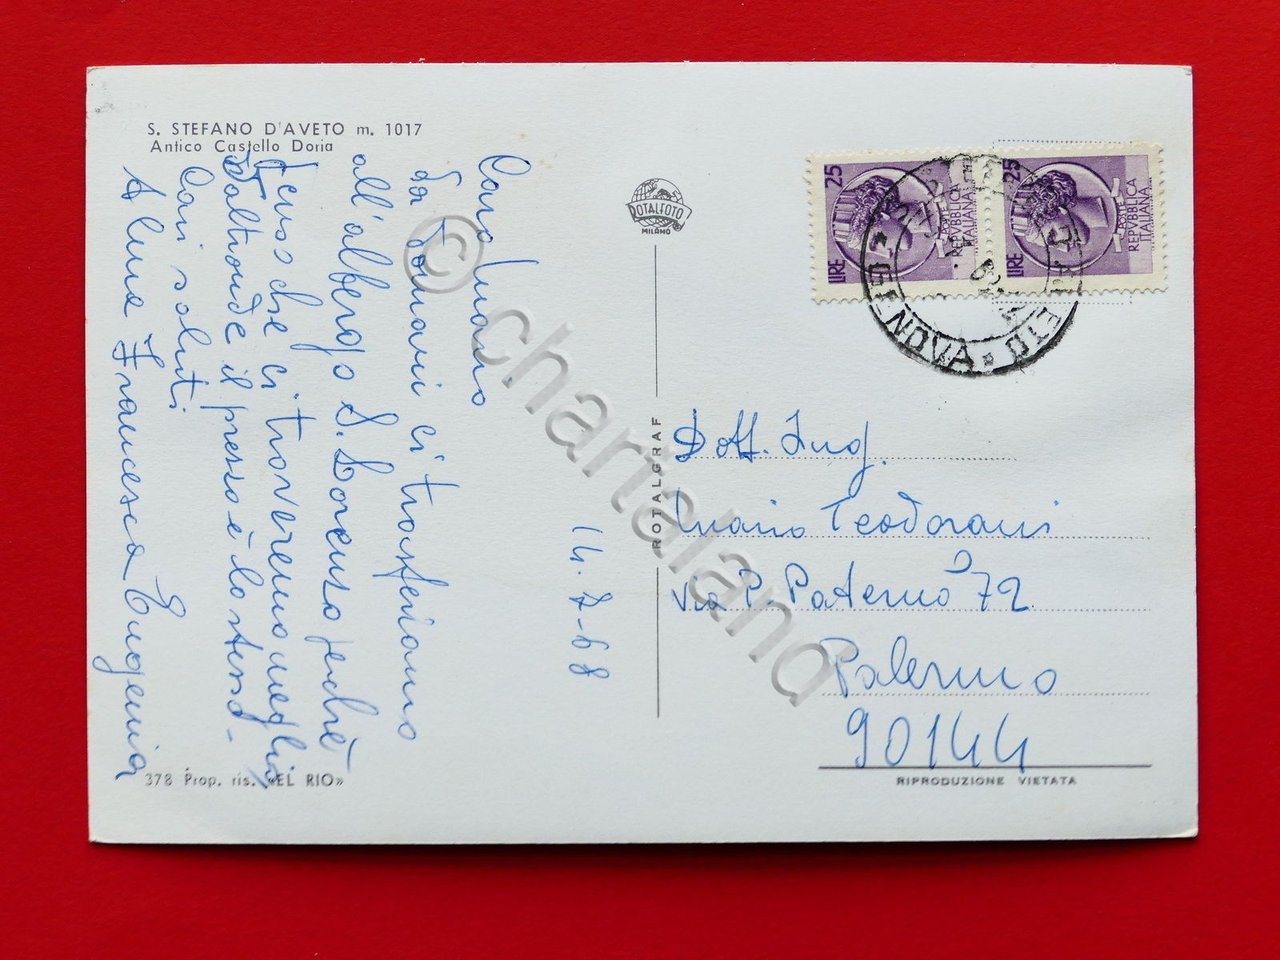 S. STEFANO D'AVETO m. 1017
Antico Castello Doria
14-7-68
Caro Mario
da domani ci trasferiamo
all'albergo S. Lorenzo perchè
penso che ci troveremo meglio,
d'altronde il prezzo è lo stesso.
Cari saluti
Francesca Eugenia
378 Prop. ris. «EL RIO»
ROTALFOTO
MILANO
ROTALGRAF
25
LIRE
POSTE
REPVBBLICA
ITALIANA
25
LIRE
POSTE
REPVBBLICA
ITALIANA
GENOVA
Dott. Ing.
Mario Teodorani
Via P. Paternò 72
Palermo
90144
RIPRODUZIONE VIETATA
© chartaland